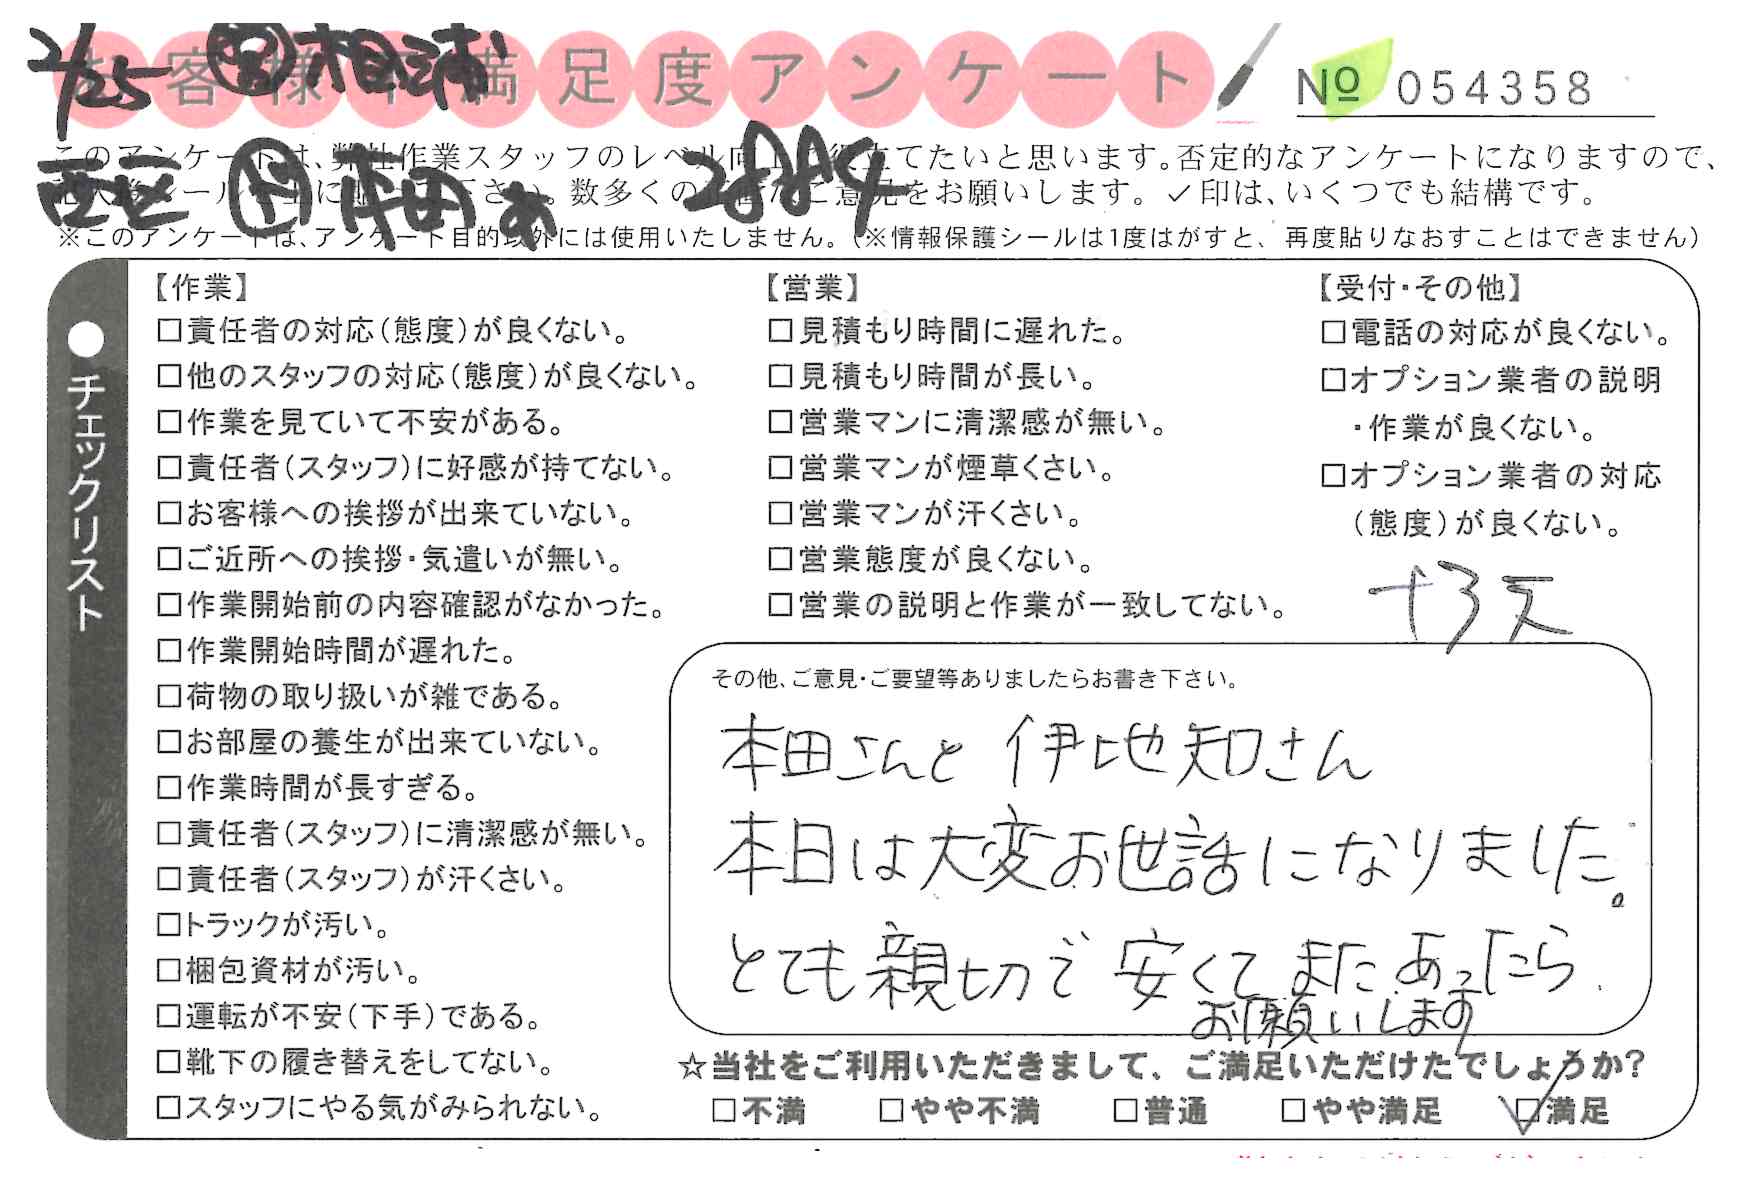 2/25 営 相浦
お客様不満足度アンケート
№ 054358
このアンケートは、弊社作業スタッフのレベル向上に役立てたいと思います。否定的なアンケートになりますので、
西区 本田 2884
数多くの ご意見をお願いします。✓印は、いくつでも結構です。
※このアンケートは、アンケート目的以外には使用いたしません。(※情報保護シールは1度はがすと、再度貼りなおすことはできません)
●チェックリスト
【作業】
□責任者の対応(態度)が良くない。
□他のスタッフの対応(態度)が良くない。
□作業を見ていて不安がある。
□責任者(スタッフ)に好感が持てない。
□お客様への挨拶が出来ていない。
□ご近所への挨拶・気遣いが無い。
□作業開始前の内容確認がなかった。
□作業開始時間が遅れた。
□荷物の取り扱いが雑である。
□お部屋の養生が出来ていない。
□作業時間が長すぎる。
□責任者(スタッフ)に清潔感が無い。
□責任者(スタッフ)が汗くさい。
□トラックが汚い。
□梱包資材が汚い。
□運転が不安(下手)である。
□靴下の履き替えをしてない。
□スタッフにやる気がみられない。
【営業】
□見積もり時間に遅れた。
□見積もり時間が長い。
□営業マンに清潔感が無い。
□営業マンが煙草くさい。
□営業マンが汗くさい。
□営業態度が良くない。
□営業の説明と作業が一致してない。
【受付・その他】
□電話の対応が良くない。
□オプション業者の説明
・作業が良くない。
□オプション業者の対応
(態度)が良くない。
その他、ご意見・ご要望等ありましたらお書き下さい。
本田さんと 伊地知さん
本日は大変お世話になりました。
とても親切で 安くて またあったら
お願いします
☆当社をご利用いただきまして、ご満足いただけたでしょうか?
□不満 □やや不満 □普通 □やや満足 ☑満足